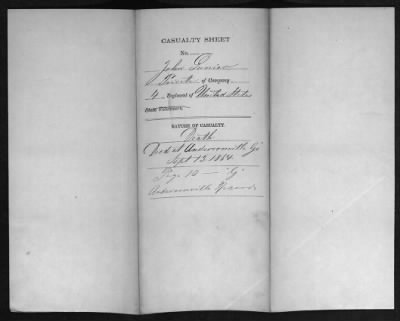 CASUALTY SHEET
No.
John
Private of Company
4 Regiment of United States
State Volunteers.
NATURE OF CASUALTY.
Death
Died at Andersonville Ga
Sept 13, 1864
Page 10 — "G"
Andersonville Records